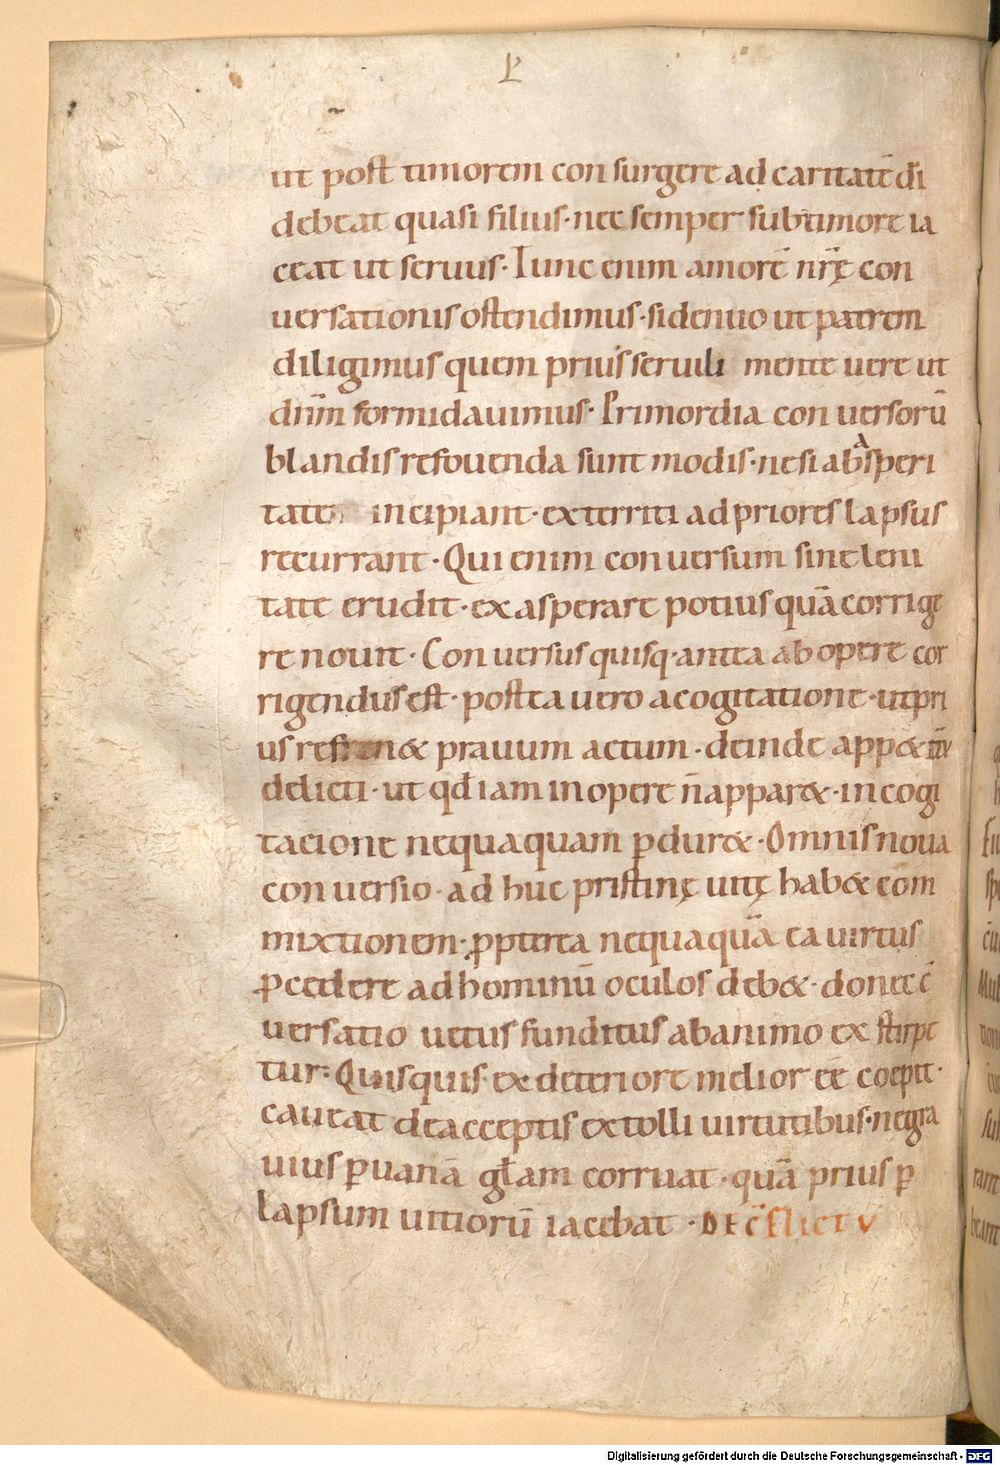 ut post timorem con surgere ad caritatē dī
debeat quasi filius· nec semper sub timore ia
ceat ut seruus· Tunc enim amorē nr̄ę con
uersationis ostendimus· si denuo ut patrem
diligimus quem prius seruili mente uere ut
dn̄m formidauimus· Primordia con uersorū
blandis refouenda sunt modis· ne si ab asperi
tate incipiant· exterriti ad priores lapsus
recurrant· Qui enim con uersum sine leni
tate erudit· exasperare potius quā corrige
re nouit· Con uersus quisq· antea ab opere cor
rigendus est· postea uero a cogitatione· ut pri
us refren& prauum actum· deinde app&itū
delicti· ut qd̄ iam in opere n̄ appar&· in cogi
tacione nequaquam ꝑdur&· Omnis noua
con uersio· ad huc pristinę uitę hab& cōm
mixtionem· ꝓpterea nequaquā ea uirtus
ꝓcedere ad hominū oculos deb&· donec c̄
uersatio uetus funditus ab animo ex stirpe
tur· Quisquis ex deteriore melior eē coepit·
caueat de acceptis extolli uirtutibus· ne gra
uius ꝑ uanā gl̄am corruat· quā prius ꝑ
lapsum uitiorū iacebat· DE C̄FLICTV
Digitalisierung gefördert durch die Deutsche Forschungsgemeinschaft - DFG